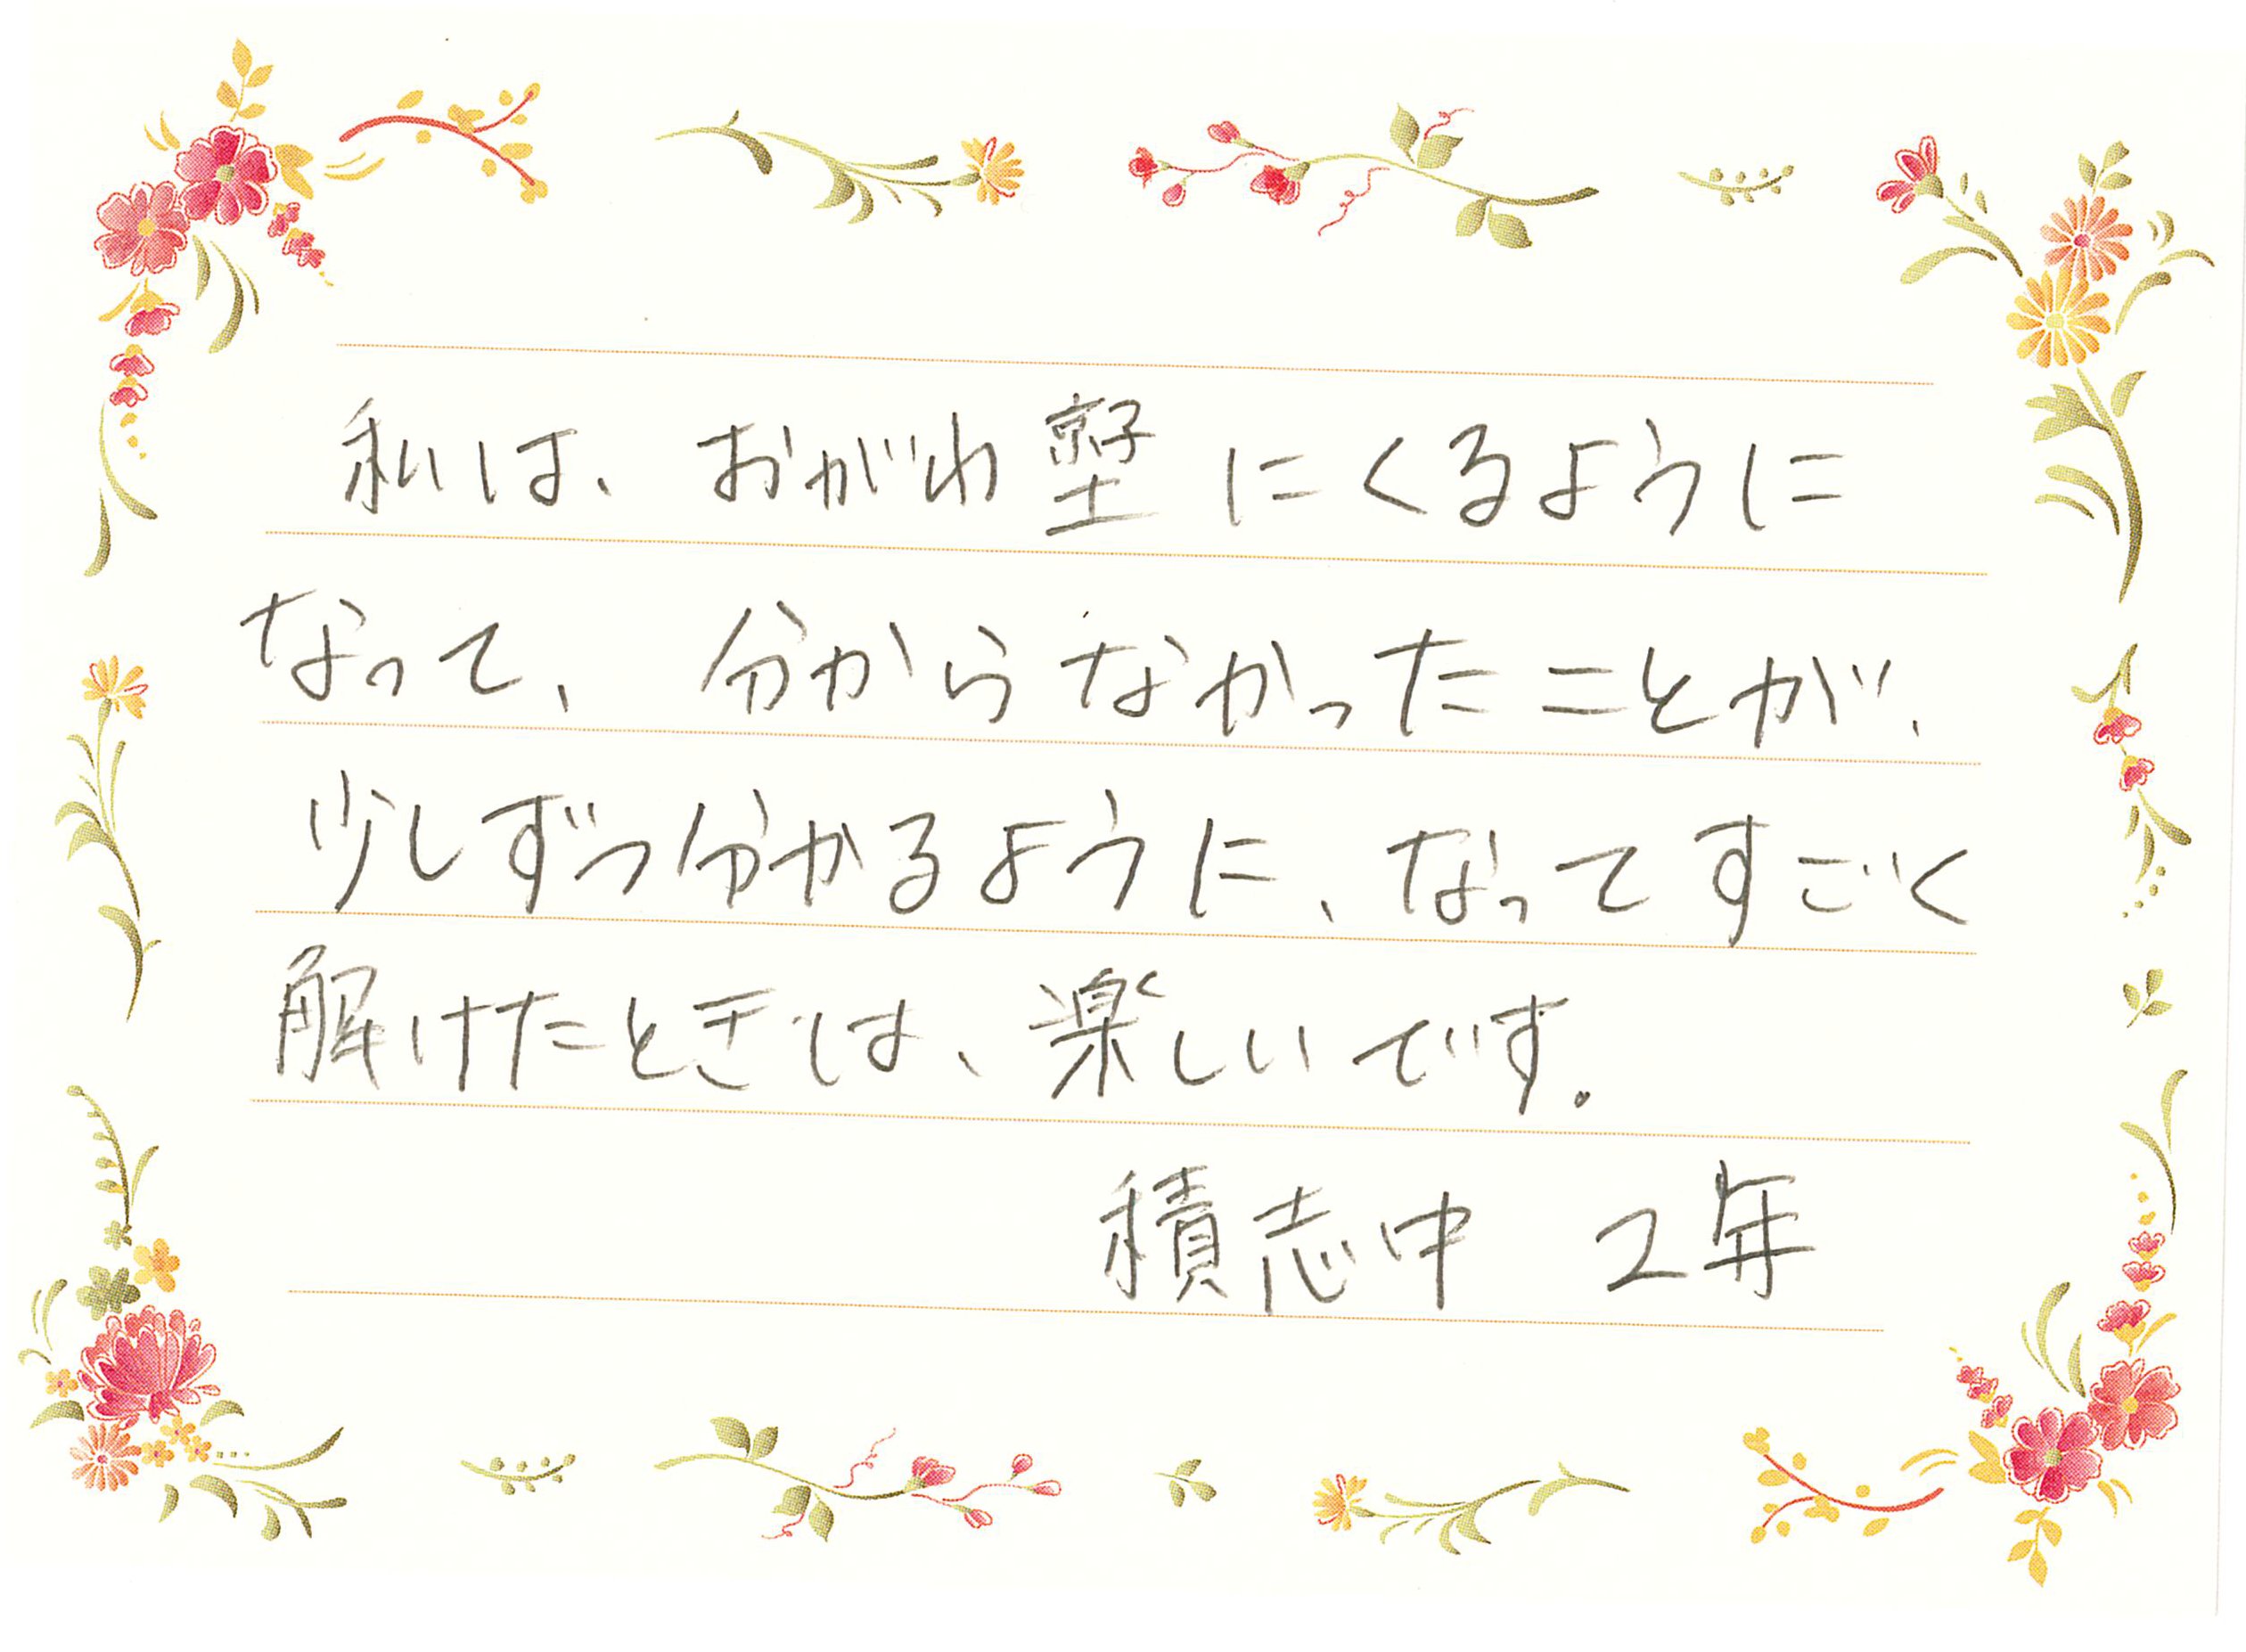 私は、おがわ塾にくるように
なって、分からなかったことが、
少しずつ分かるように、なってすごく
解けたときは、楽しいです.
積志中 2年